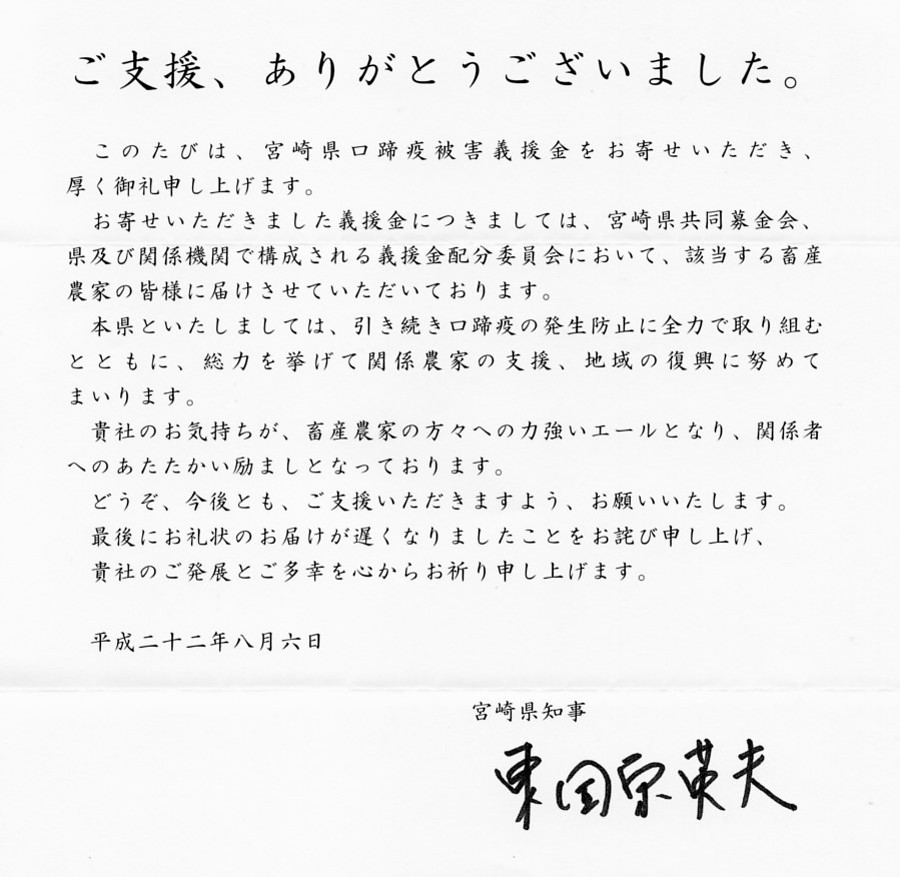 ご支援、ありがとうございました。
このたびは、宮崎県口蹄疫被害義援金をお寄せいただき、
厚く御礼申し上げます。
お寄せいただきました義援金につきましては、宮崎県共同募金会、
県及び関係機関で構成される義援金配分委員会において、該当する畜産
農家の皆様に届けさせていただいております。
本県といたしましては、引き続き口蹄疫の発生防止に全力で取り組む
とともに、総力を挙げて関係農家の支援、地域の復興に努めて
まいります。
貴社のお気持ちが、畜産農家の方々への力強いエールとなり、関係者
へのあたたかい励ましとなっております。
どうぞ、今後とも、ご支援いただきますよう、お願いいたします。
最後にお礼状のお届けが遅くなりましたことをお詫び申し上げ、
貴社のご発展とご多幸を心からお祈り申し上げます。
平成二十二年八月六日
宮崎県知事
東国原英夫